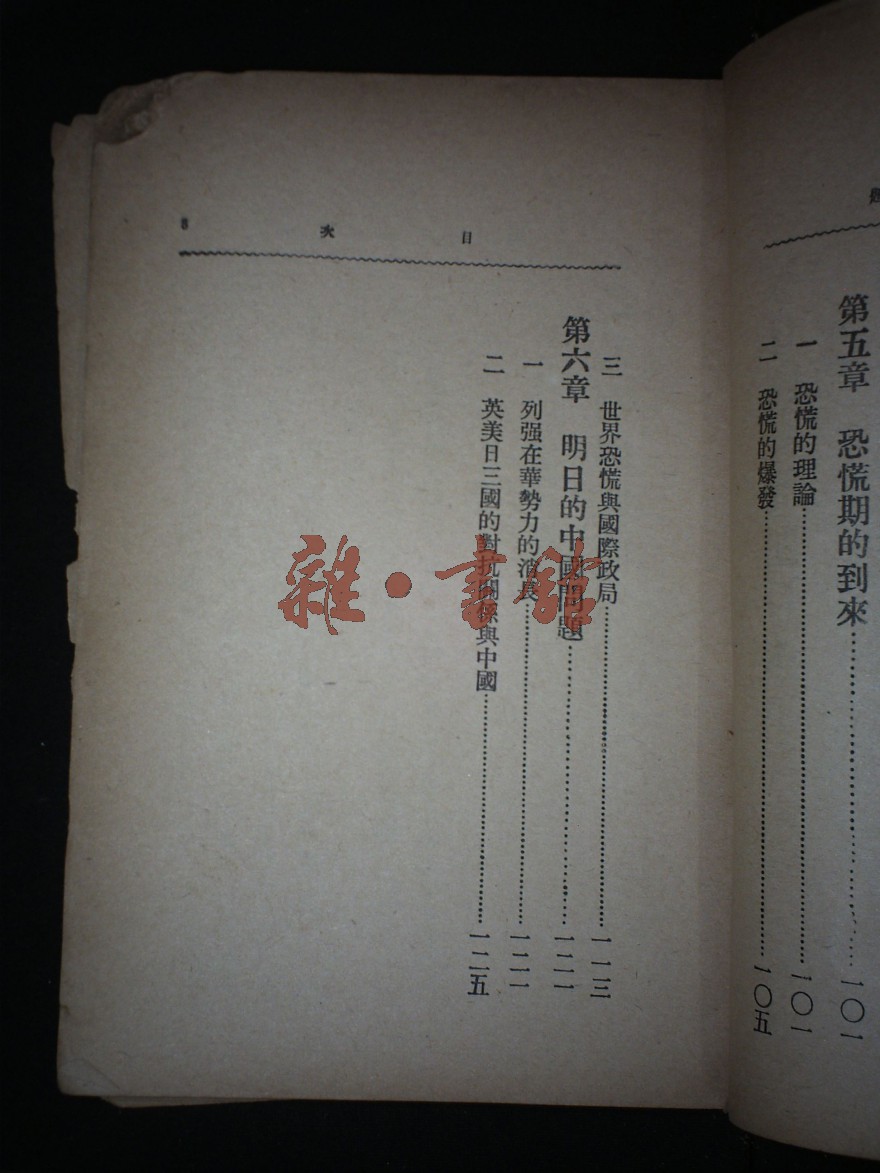 第五章　恐慌期的到來……一〇一
一　恐慌的理論……一〇一
二　恐慌的爆發……一〇五
目　次　8
三　世界恐慌與國際政局……一一三
第六章　明日的中國問題……一二一
一　列强在華勢力的消長……一二一
二　英美日三國的對抗關係與中國……一二五
雜·書館